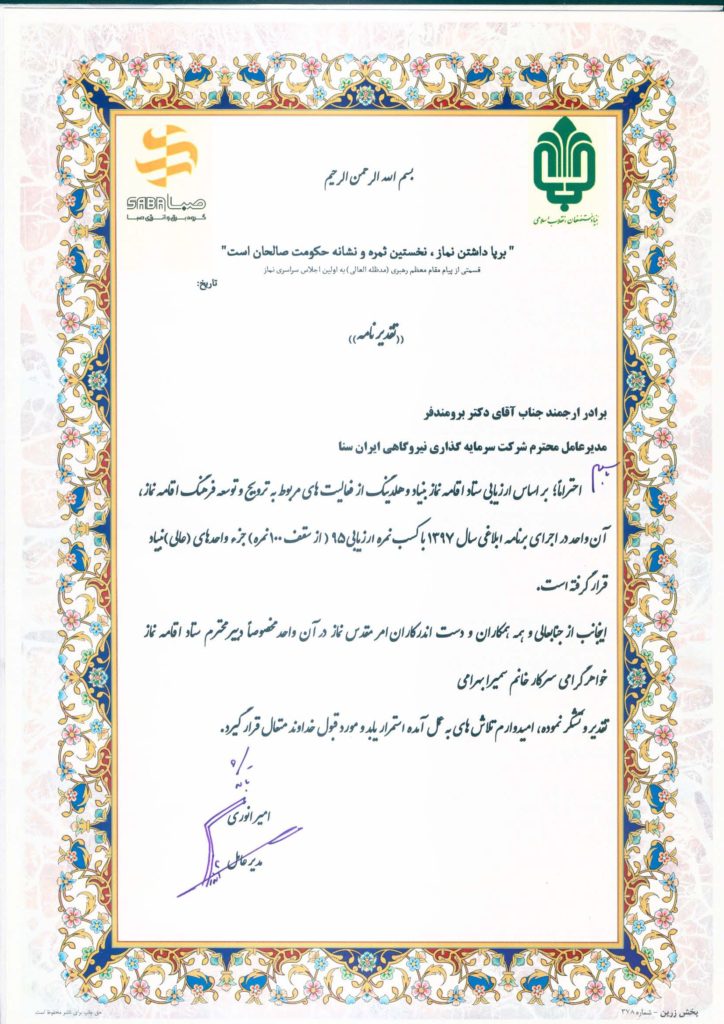 بنیاد مستضعفان انقلاب اسلامی
بسم الله الرحمن الرحیم
صبا
SABA
گروه برق و انرژی صبا
" برپا داشتن نماز ، نخستین ثمره و نشانه حکومت صالحان است"
قسمتی از پیام مقام معظم رهبری (مدظله العالی) به اولین اجلاس سراسری نماز
تاریخ:
((تقدیرنامه))
برادر ارجمند جناب آقای دکتر برومندفر
مدیرعامل محترم شرکت سرمایه گذاری نیروگاهی ایران سنا
احتراماً؛ بر اساس ارزیابی ستاد اقامه نماز بنیاد و هلدینگ از فعالیت های مربوط به ترویج و توسعه فرهنگ اقامه نماز ،
آن واحد در اجرای برنامه ابلاغی سال ۱۳۹۷ با کسب نمره ارزیابی ۹۵ ( از سقف ۱۰۰ نمره) جزء واحدهای (عالی) بنیاد
قرار گرفته است.
اینجانب از جنابعالی و همه همکاران و دست اندرکاران امر مقدس نماز در آن واحد مخصوصاً دبیر محترم ستاد اقامه نماز
خواهر گرامی سرکار خانم سمیرا بهرامی
تقدیر و تشکر نموده، امیدوارم تلاش های به عمل آمده استمرار یابد و مورد قبول خداوند متعال قرار گیرد.
امیر انوری
مدیرعامل
پخش زرین - شماره ۳۷۸
حق چاپ برای ناشر محفوظ است